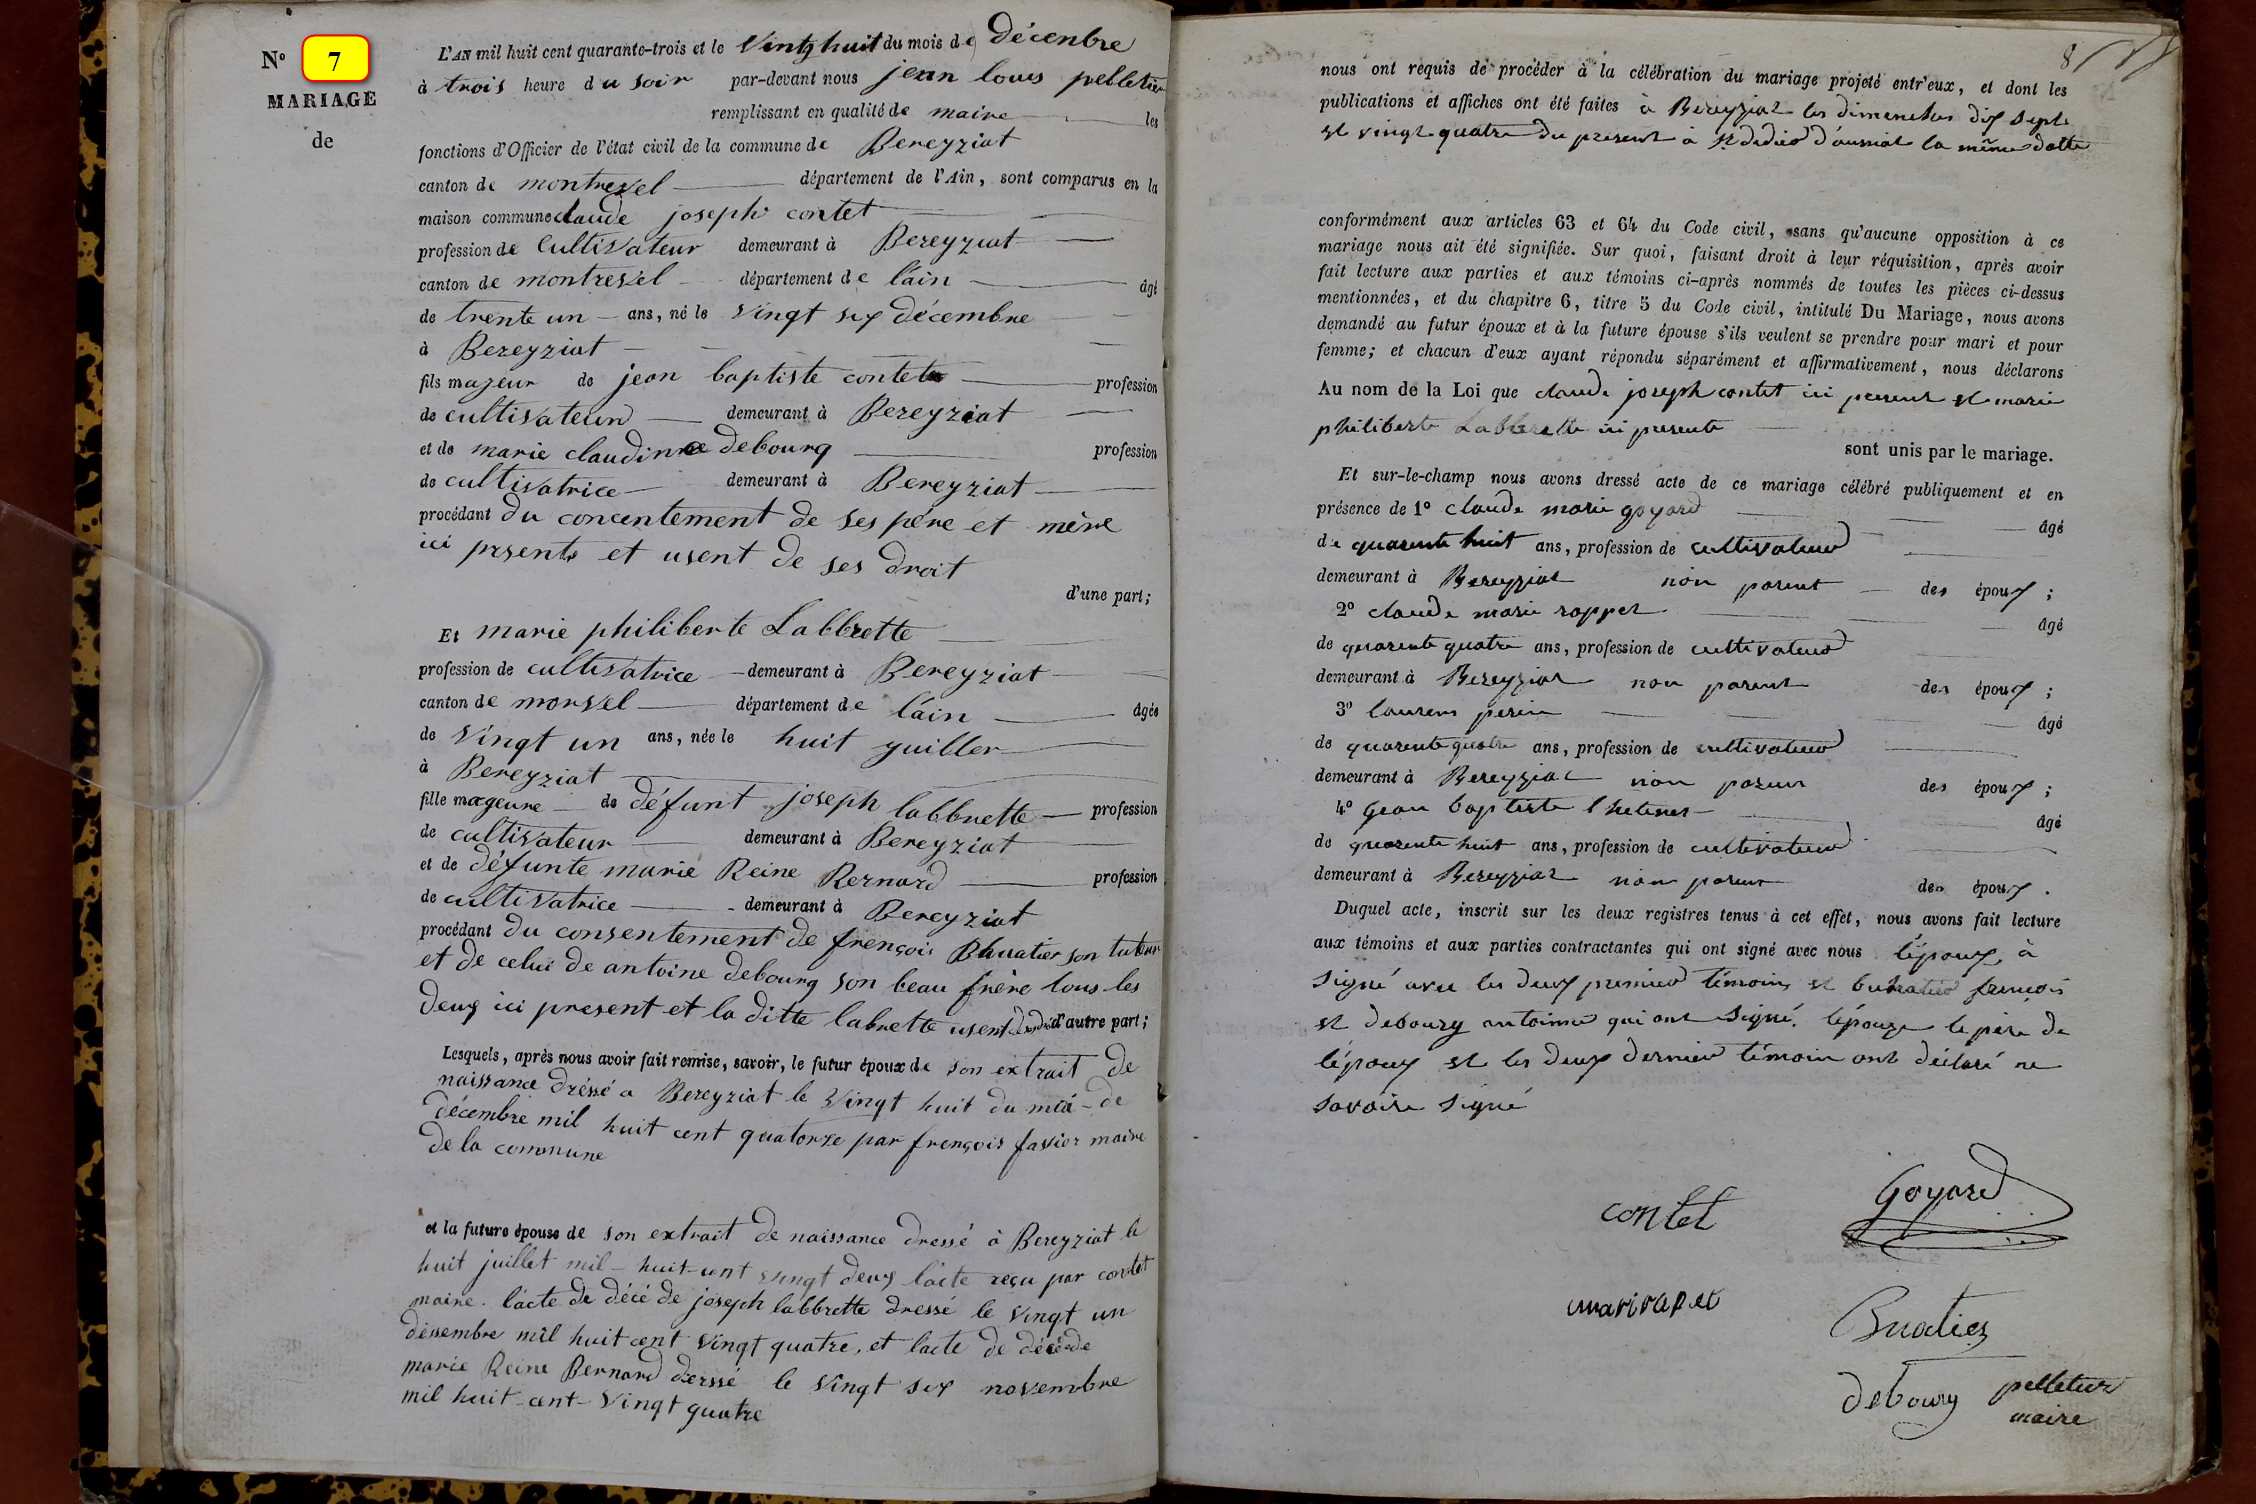 N° 7
MARIAGE
de
L'AN mil huit cent quarante-trois et le vingt huit du mois de décenbre
à trois heure du soir par-devant nous jean louis pelletier
remplissant en qualité de maire les
fonctions d'Officier de l'état civil de la commune de Bereyziat
canton de montrevel département de l'Ain, sont comparus en la
maison commune claude joseph contet
profession de cultivateur demeurant à Bereyziat
canton de montrevel département de l'áin âgé
de trente un ans, né le vingt six décembre
à Bereyziat
fils majeur de jean baptiste contet profession
de cultivateur demeurant à Bereyziat
et de marie claudinne debourg profession
de cultivatrice demeurant à Bereyziat
procédant du concentement de ses père et mère
ici présents et usent de ses droit
d'une part;
Et marie philiberte Labbrette
profession de cultivatrice demeurant à Bereyziat
canton de morvel département de l'áin âgée
de vingt un ans, née le huit yuiller
à Bereyziat
fille mageure de défunt joseph labbrette profession
de cultivateur demeurant à Bereyziat
et de défunte marie Reine Bernard profession
de cultivatrice demeurant à Bereyziat
procédant du consentement de françois son tuteur
et de celui de antoine debourg son beau frère tous les
deux ici present et la ditte labrette usent d'autre part;
Lesquels, après nous avoir fait remise, savoir, le futur époux de son extrait de
naissance dréssé a Bereyziat le vingt huit du de
décembre mil huit cent quatorze par françois favier maire
de la commune
et la future épouse de son extrait de naissance dressé à Bereyziat le
huit juillet mil huit-cent vingt deux l'acte reçu par contet
maire. l'acte de décé de joseph labbrette dressé le vingt un
déssembre mil huit cent vingt quatre, et lacte de décé de
marie Reine Bernard derssé le vingt six novembre
mil huit-cent-vingt quatre
8
nous ont requis de procéder à la célébration du mariage projeté entr'eux, et dont les
publications et affiches ont été faites à Bereyziat les dimenches dix sept
et vingt quatre du present à St didier d'aussiat la même datte
conformément aux articles 63 et 64 du Code civil, sans qu'aucune opposition à ce
mariage nous ait été signifiée. Sur quoi, faisant droit à leur réquisition, après avoir
fait lecture aux parties et aux témoins ci-après nommés de toutes les pièces ci-dessus
mentionnées, et du chapitre 6, titre 5 du Code civil, intitulé Du Mariage, nous avons
demandé au futur époux et à la future épouse s'ils veulent se prendre pour mari et pour
femme; et chacun d'eux ayant répondu séparément et affirmativement, nous déclarons
Au nom de la Loi que claude joseph contet ici present et marie
philiberte Labbrette ici presente
sont unis par le mariage.
Et sur-le-champ nous avons dressé acte de ce mariage célébré publiquement et en
présence de 1° claude marie goyard âgé
de quarente huit ans, profession de cultivateur
demeurant à Bereyziat non parent des époux;
2° claude marie rappet âgé
de quarente quatre ans, profession de cultivateur
demeurant à Bereyziat non parent des époux;
3° laurens perin âgé
de quarente quatre ans, profession de cultivateur
demeurant à Bereyziat non parent des époux;
4° Jean baptiste âgé
de quarente huit ans, profession de cultivateur
demeurant à Bereyziat non parent des époux.
Duquel acte, inscrit sur les deux registres tenus à cet effet, nous avons fait lecture
aux témoins et aux parties contractantes qui ont signé avec nous l'époux, à
signé avec les deux premier témoins et buatier françois
et debourg antoinne qui ont signé. l'épouze le père de
l'époux et les deux dernier témoin ont déclaré ne
savoire signé
contet
Goyard
Buatier
debourg
pelletier
maire